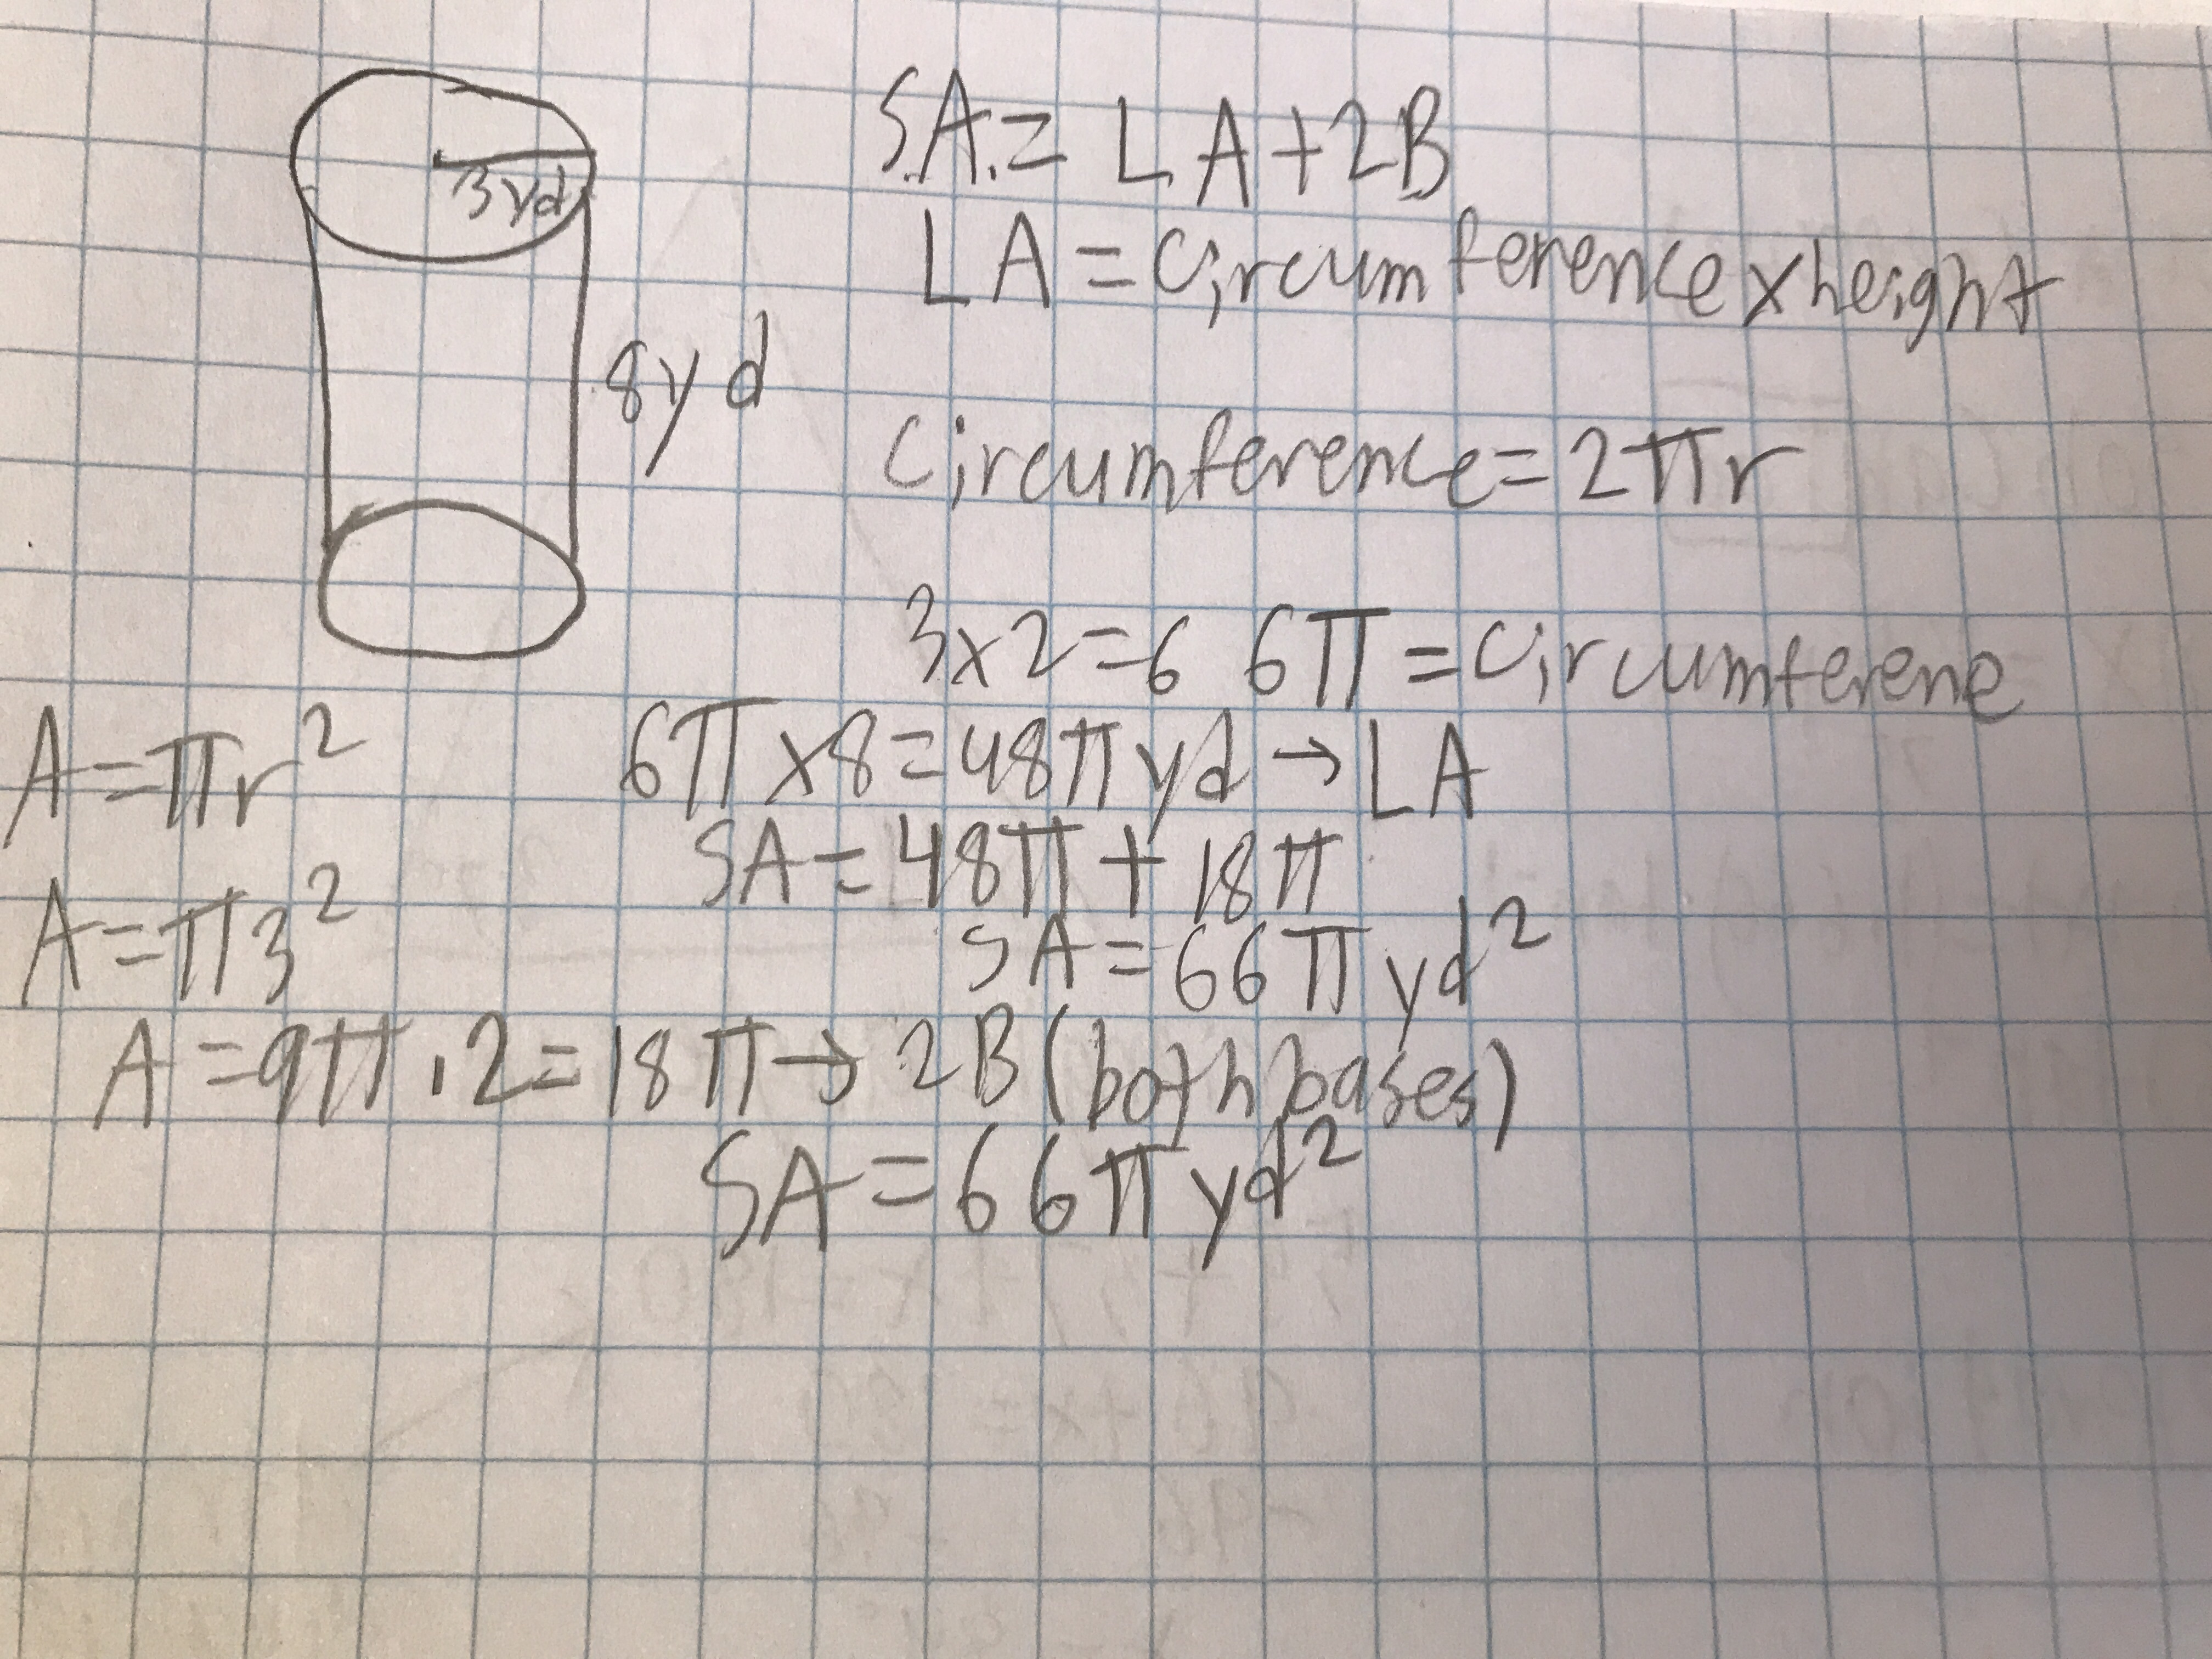 3yd
8yd
S.A. = LA+2B
LA = Circumference x height
Circumference = 2πr
3x2=6 6π = Circumferene
6π x8=48π yd → LA
SA = 48π + 18π
SA = 66π yd²
A=πr²
A=π3²
A=9π.2=18π → 2B (both bases)
SA = 66π yd²